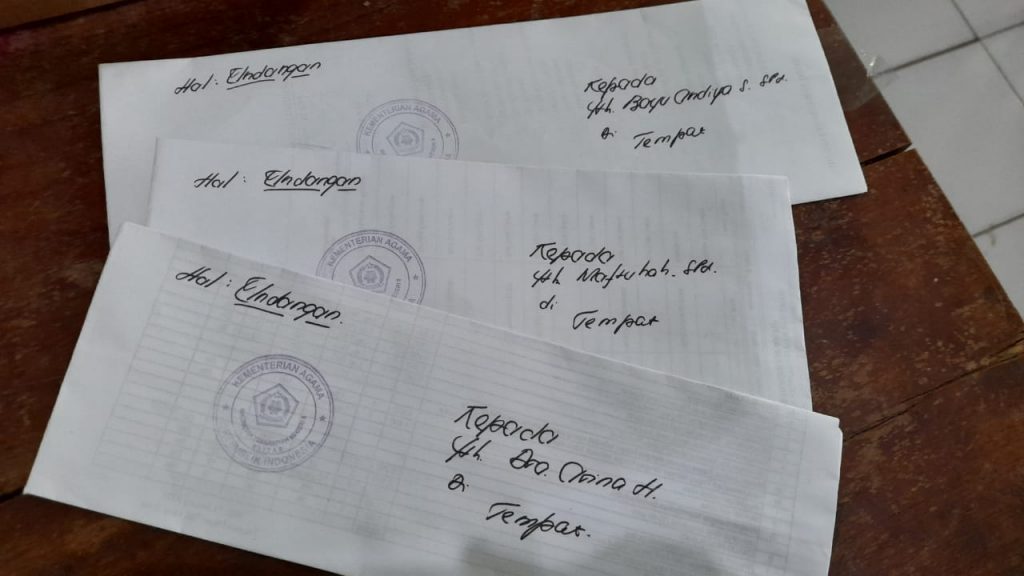 Hal : Undangan
KEMENTERIAN AGAMA
Kepada
Yth. Bayu Andiya S. SPd.
di
Tempat
Hal : Undangan
KEMENTERIAN AGAMA
Kepada
Yth. Maftuhah. SPd.
di
Tempat
Hal : Undangan.
KEMENTERIAN AGAMA
INDONESIA
Kepada
Yth. Dra. Chana H.
di
Tempat.